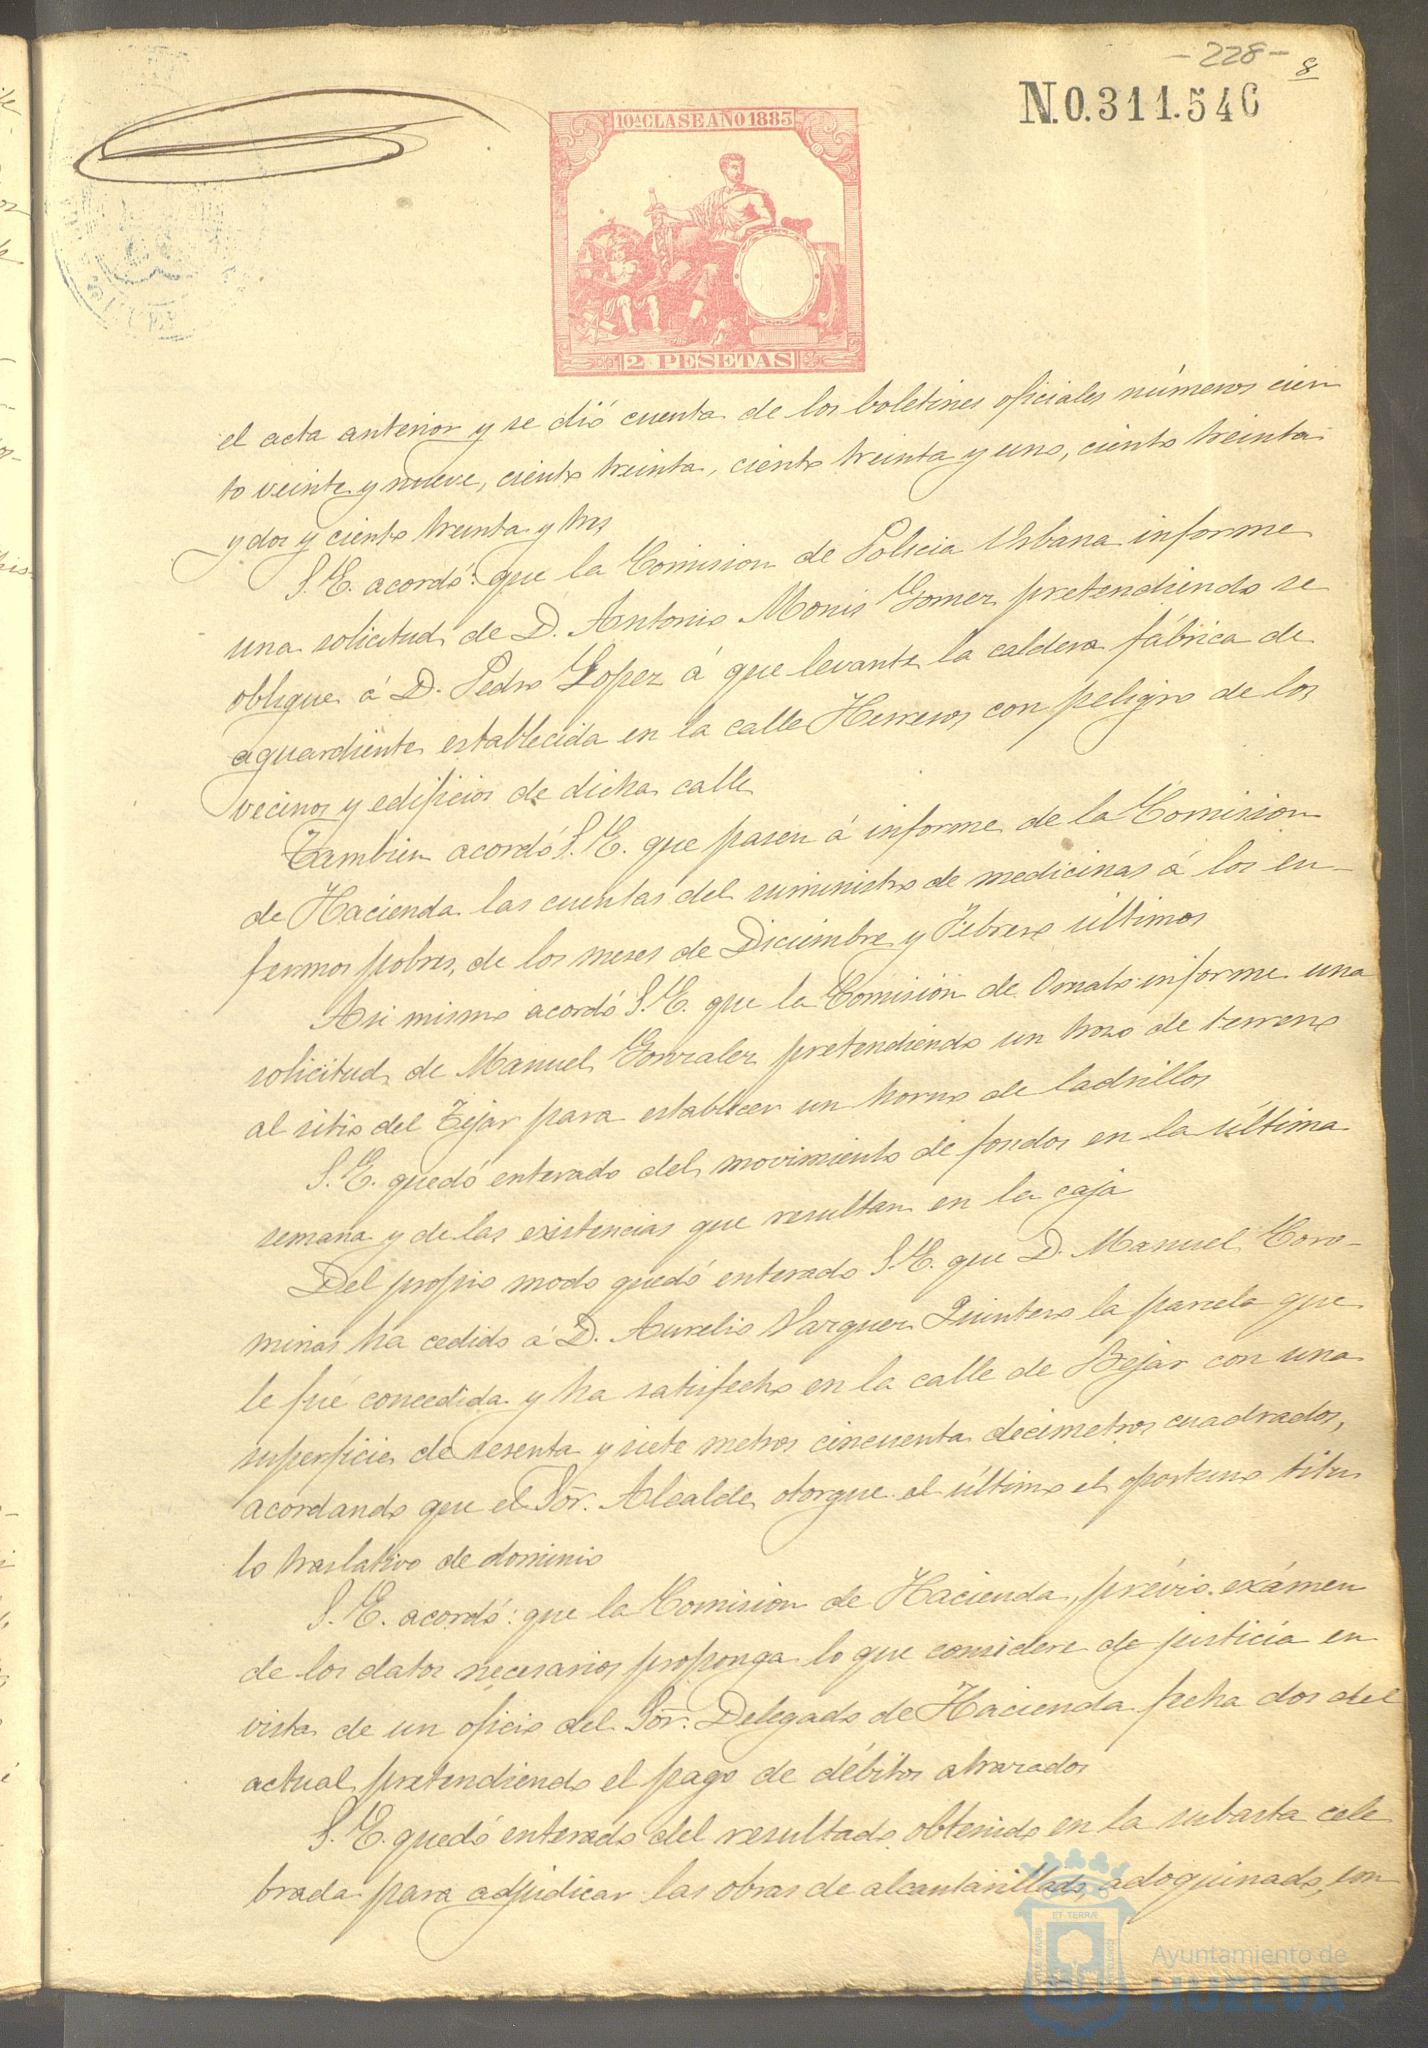 -228-
8
N.0.311.546
10ª CLASE AÑO 1885
2 PESETAS
el acta anterior y se dió cuenta de los boletines oficiales números cien
to veinte y nueve, ciento treinta, ciento treinta y uno, ciento treinta
y dos y ciento treinta y tres
S.E. acordó: que la Comision de Policia Urbana informe
una solicitud de D. Antonio Monis Gomez pretendiendo se
obligue á D. Pedro Lopez á que levante la caldera fábrica de
aguardiente establecida en la calle Herreros con peligro de los
vecinos y edificios de dicha calle
Tambien acordó S.E. que pasen á informe de la Comision
de Hacienda las cuentas del suministro de medicinas á los en-
fermos pobres, de los meses de Diciembre y Febrero últimos
Asi mismo acordó S.E. que la Comision de Ornato informe una
solicitud de Manuel Gonzalez pretendiendo un trozo de terreno
al sitio del Tejar para establecer un horno de ladrillos
S.E. quedó enterado del movimiento de fondos en la última
semana y de las existencias que resultan en la caja
Del propio modo quedó enterado S.E. que D. Manuel Coro-
minas ha cedido á D. Aurelio Vazquez Quintero la parcela que
le fué concedida y ha satisfecho en la calle de Bejar con una
superficie de sesenta y siete metros cincuenta decimetros cuadrados,
acordando que el Sor. Alcalde otorgue al último el oportuno titu
lo traslativo de dominio
S.E. acordó: que la Comision de Hacienda, prévio exámen
de los datos necesarios proponga lo que considere de justicia en
vista de un oficio del Sor. Delegado de Hacienda fecha dos del
actual pretendiendo el pago de débitos atrazados
S.E. quedó enterado del resultado obtenido en la subasta cele
brada para adjudicar las obras de alcantarillado, adoquinado, em
Ayuntamiento de
HUELVA